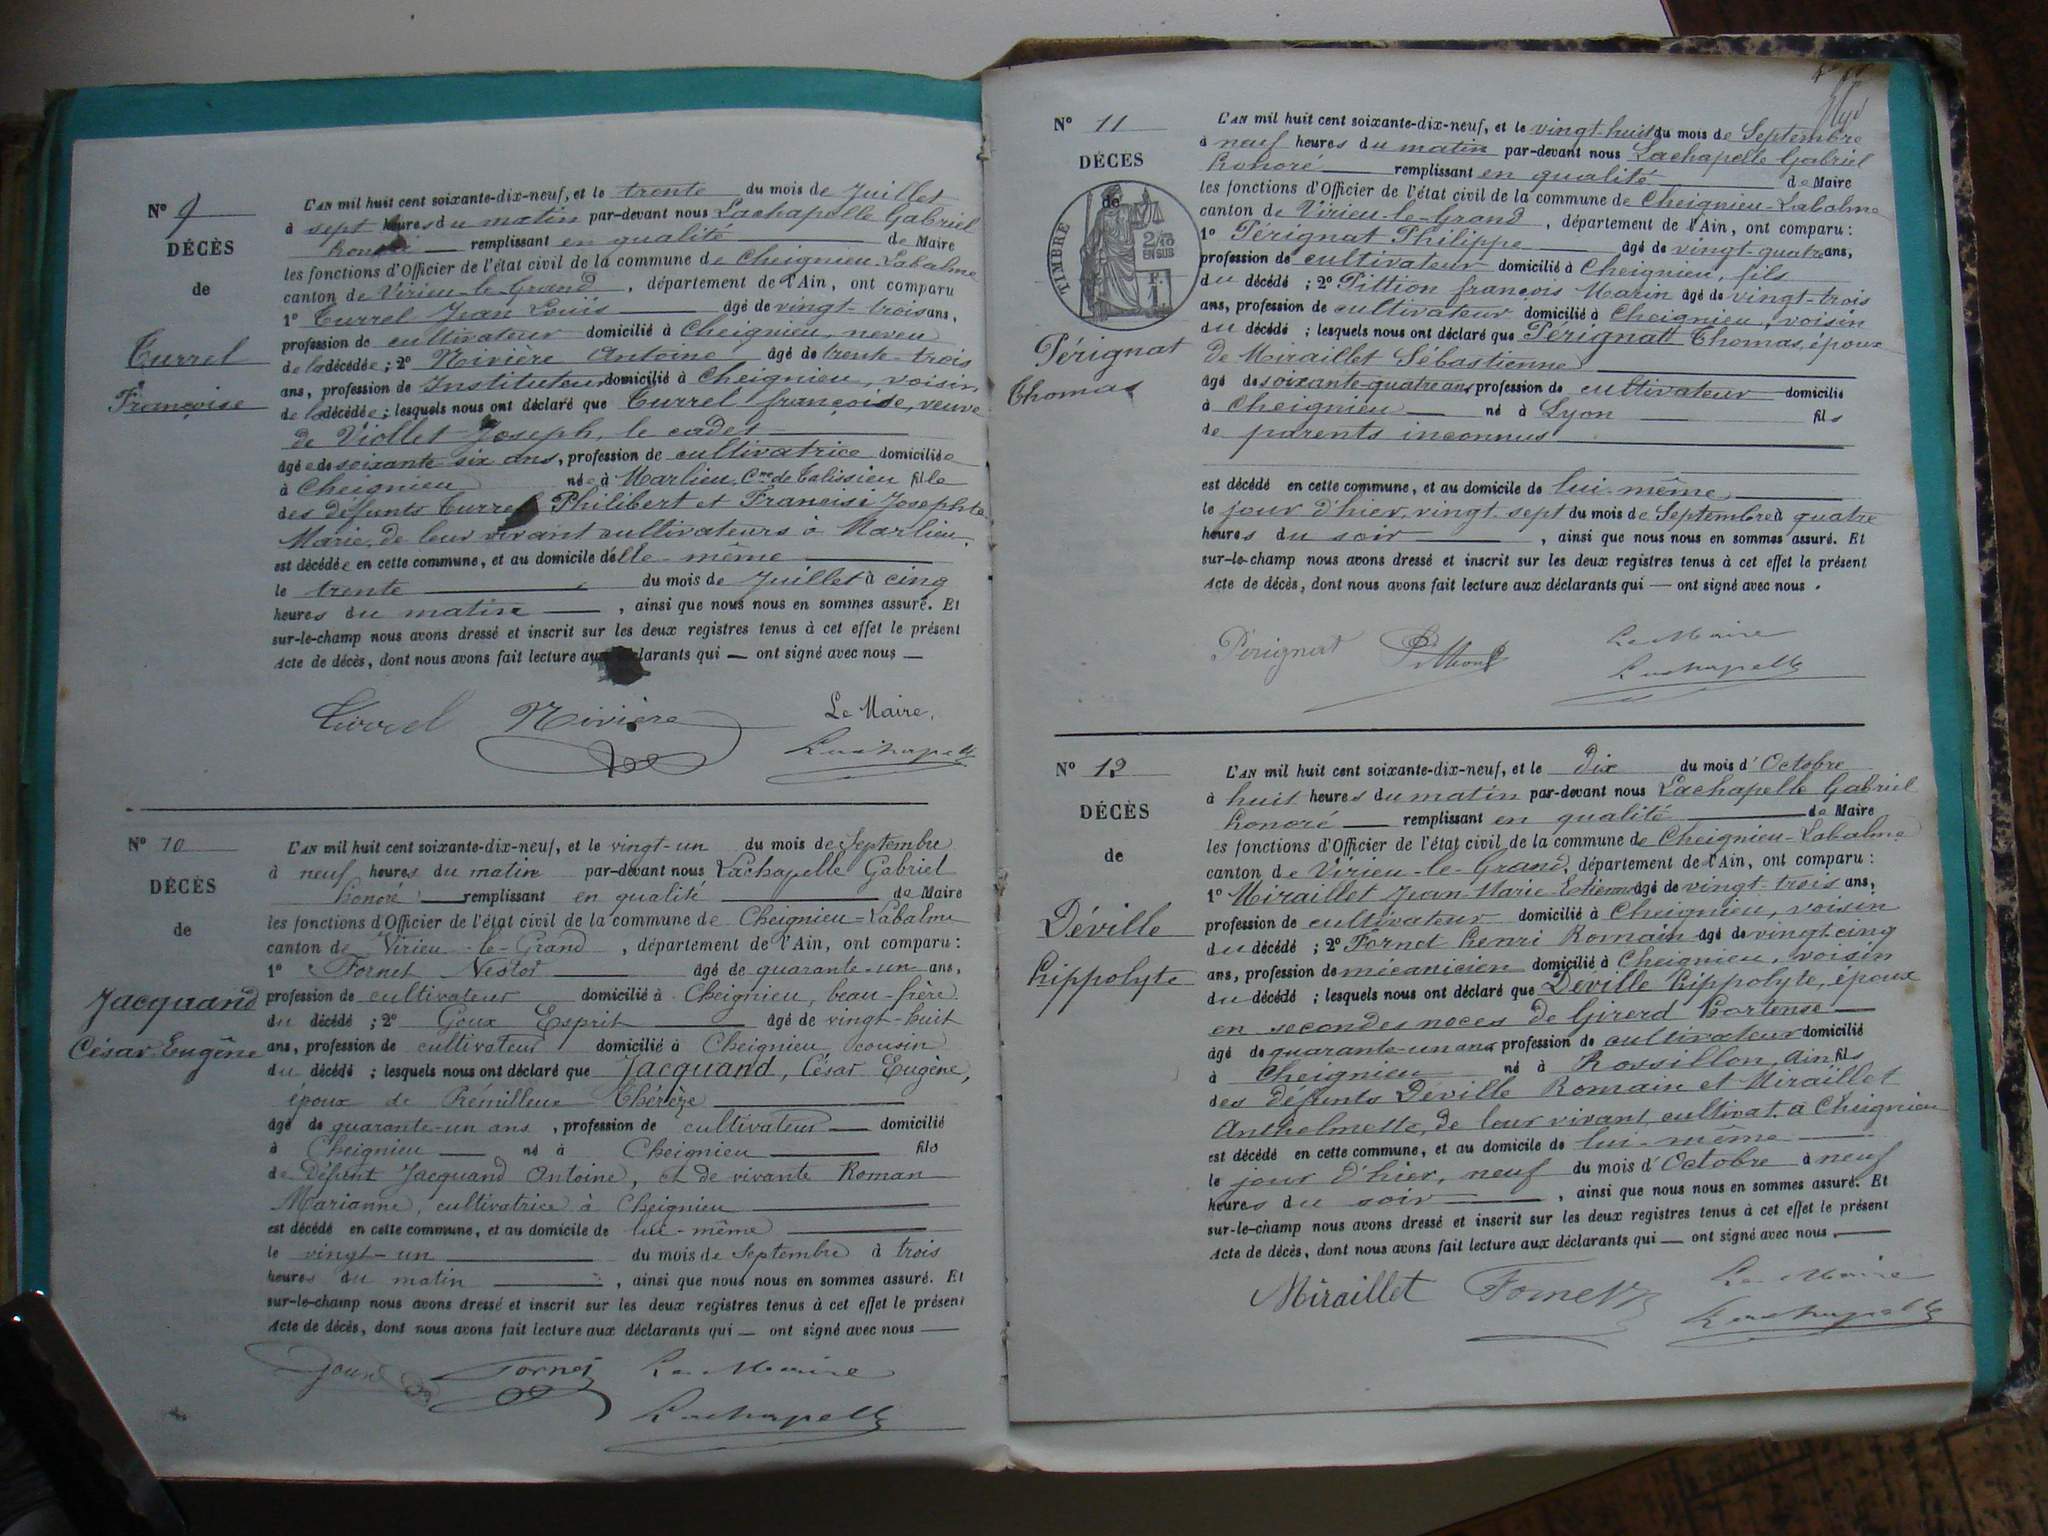 N° 9
DÉCÈS
de
Turrel
Françoise
L'AN mil huit cent soixante-dix-neuf, et le trente du mois de Juillet
à sept heures du matin par-devant nous Lachapelle Gabriel
honoré remplissant en qualité de Maire
les fonctions d'Officier de l'état civil de la commune de Cheignieu-Labalme
canton de Virieu-le-Grand, département de l'Ain, ont comparu
1° Turrel Jean Louis âgé de vingt-trois ans,
profession de cultivateur domicilié à Cheignieu, neveu
de la décédée ; 2° Rivière Antoine âgé de trente-trois
ans, profession de Instituteur domicilié à Cheignieu, voisin
de la décédée ; lesquels nous ont déclaré que Turrel françoise, veuve
de Viollet Joseph, le cadet
âgée de soixante six ans, profession de cultivatrice domiciliée
à Cheignieu née à Marlieu, Cne de Talissieu fille
des défunts Turrel Philibert et Francisi Josephte
Marie, de leur vivant cultivateurs à Marlieu,
est décédée en cette commune, et au domicile d'elle-même
le trente du mois de Juillet à cinq
heures du matin, ainsi que nous nous en sommes assuré. Et
sur-le-champ nous avons dressé et inscrit sur les deux registres tenus à cet effet le présent
Acte de décès, dont nous avons fait lecture aux déclarants qui — ont signé avec nous —
Turrel Rivière Le Maire,
Lachapelle
N° 10
DÉCÈS
de
Jacquand
César Eugène
L'AN mil huit cent soixante-dix-neuf, et le vingt-un du mois de Septembre
à neuf heures du matin par-devant nous Lachapelle Gabriel
honoré remplissant en qualité de Maire
les fonctions d'Officier de l'état civil de la commune de Cheignieu=Labalme
canton de Virieu-le-Grand, département de l'Ain, ont comparu :
1° Fornet Nestor âgé de quarante-un ans,
profession de cultivateur domicilié à Cheignieu, beau-frère
du décédé ; 2° Goux Esprit âgé de vingt-huit
ans, profession de cultivateur domicilié à Cheignieu cousin
du décédé ; lesquels nous ont déclaré que Jacquand, César Eugène,
époux de Prémilleux Thérèze
âgé de quarante-un ans, profession de cultivateur domicilié
à Cheignieu né à Cheignieu fils
de Défunt Jacquand Antoine, et de vivante Roman
Marianne, cultivatrice à Cheignieu
est décédé en cette commune, et au domicile de lui-même
le vingt-un du mois de Septembre à trois
heures du matin, ainsi que nous nous en sommes assuré. Et
sur-le-champ nous avons dressé et inscrit sur les deux registres tenus à cet effet le présent
Acte de décès, dont nous avons fait lecture aux déclarants qui — ont signé avec nous —
Goux Fornet Le Maire
Lachapelle
N° 11
DÉCÈS
de
TIMBRE
2/10 EN SUS
Pérignat
Thomas
L'AN mil huit cent soixante-dix-neuf, et le vingt-huit du mois de Septembre
à neuf heures du matin par-devant nous Lachapelle Gabriel
honoré remplissant en qualité de Maire
les fonctions d'Officier de l'état civil de la commune de Cheignieu-Labalme
canton de Virieu-le-Grand, département de l'Ain, ont comparu :
1° Pérignat Philippe âgé de vingt-quatre ans,
profession de cultivateur domicilié à Cheignieu, fils
du décédé ; 2° Pittion françois Marin âgé de vingt-trois
ans, profession de cultivateur domicilié à Cheignieu, voisin
du décédé ; lesquels nous ont déclaré que Pérignat Thomas, époux
de Miraillet Sébastienne
âgé de soixante-quatre ans, profession de cultivateur domicilié
à Cheignieu né à Lyon fils
de parents inconnus
est décédé en cette commune, et au domicile de lui-même
le jour d'hier, vingt sept du mois de Septembre à quatre
heures du soir, ainsi que nous nous en sommes assuré. Et
sur-le-champ nous avons dressé et inscrit sur les deux registres tenus à cet effet le présent
Acte de décès, dont nous avons fait lecture aux déclarants qui — ont signé avec nous .
Pérignat Pittion Le Maire
Lachapelle
N° 12
DÉCÈS
de
Déville
hippolyte
L'AN mil huit cent soixante-dix-neuf, et le dix du mois d'Octobre
à huit heures du matin par-devant nous Lachapelle Gabriel
honoré remplissant en qualité de Maire
les fonctions d'Officier de l'état civil de la commune de Cheignieu-Labalme
canton de Virieu-le-Grand, département de l'Ain, ont comparu :
1° Miraillet Jean-Marie-Etienne âgé de vingt-trois ans,
profession de cultivateur domicilié à Cheignieu, voisin
du décédé ; 2° Fornet henri Romain âgé de vingt cinq
ans, profession de mécanicien domicilié à Cheignieu, voisin
du décédé ; lesquels nous ont déclaré que Déville hippolyte, époux
en secondes noces de Girerd hortense
âgé de quarante-un ans profession de cultivateur domicilié
à Cheignieu né à Rossillon, Ain fils
des défunts Déville Romain et Miraillet
Anthelmette, de leur vivant, cultivat. à Cheignieu
est décédé en cette commune, et au domicile de lui-même
le jour d'hier, neuf du mois d'Octobre à neuf
heures du soir, ainsi que nous nous en sommes assuré. Et
sur-le-champ nous avons dressé et inscrit sur les deux registres tenus à cet effet le présent
Acte de décès, dont nous avons fait lecture aux déclarants qui — ont signé avec nous .
Miraillet Fornet Le Maire
Lachapelle